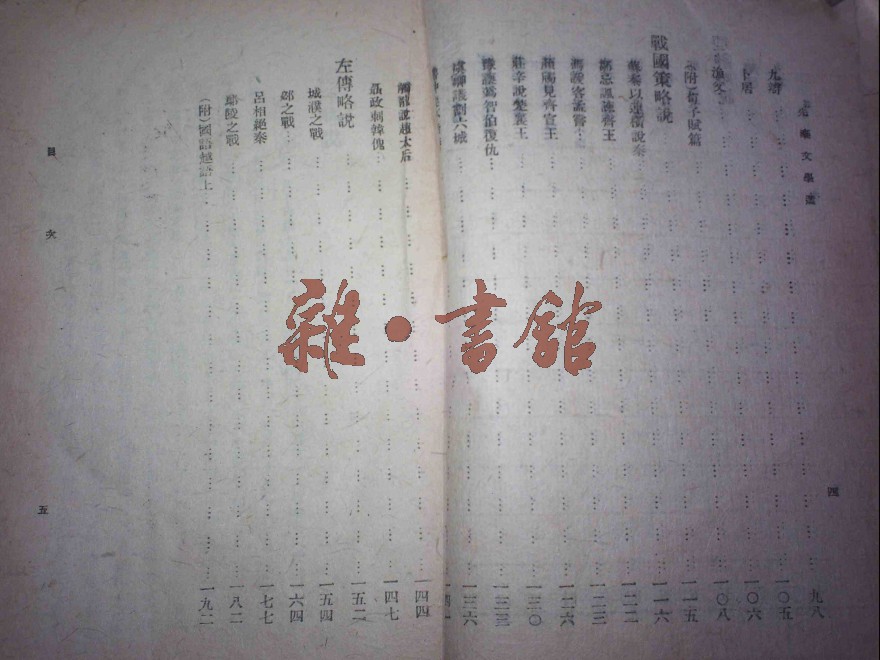 文學
四
九辯 九八
卜居 一〇五
漁父 一〇六
(附)荀子賦篇 一〇八
戰國策略說 一一五
蘇秦以連橫說秦 一一六
鄒忌諷齊王 一二二
馮諼客孟嘗 一二三
顏斶見齊宣王 一二六
莊辛說楚襄王 一三〇
豫讓為智伯復仇 一三三
虞卿議割六城 一三六
觸讋說趙太后 一四四
聶政刺韓傀 一四七
左傳略說 一五二
城濮之戰 一五四
邲之戰 一六四
呂相絕秦 一七七
鄢陵之戰 一八二
(附)國語越語上 一九二
目次
五
雜·書館